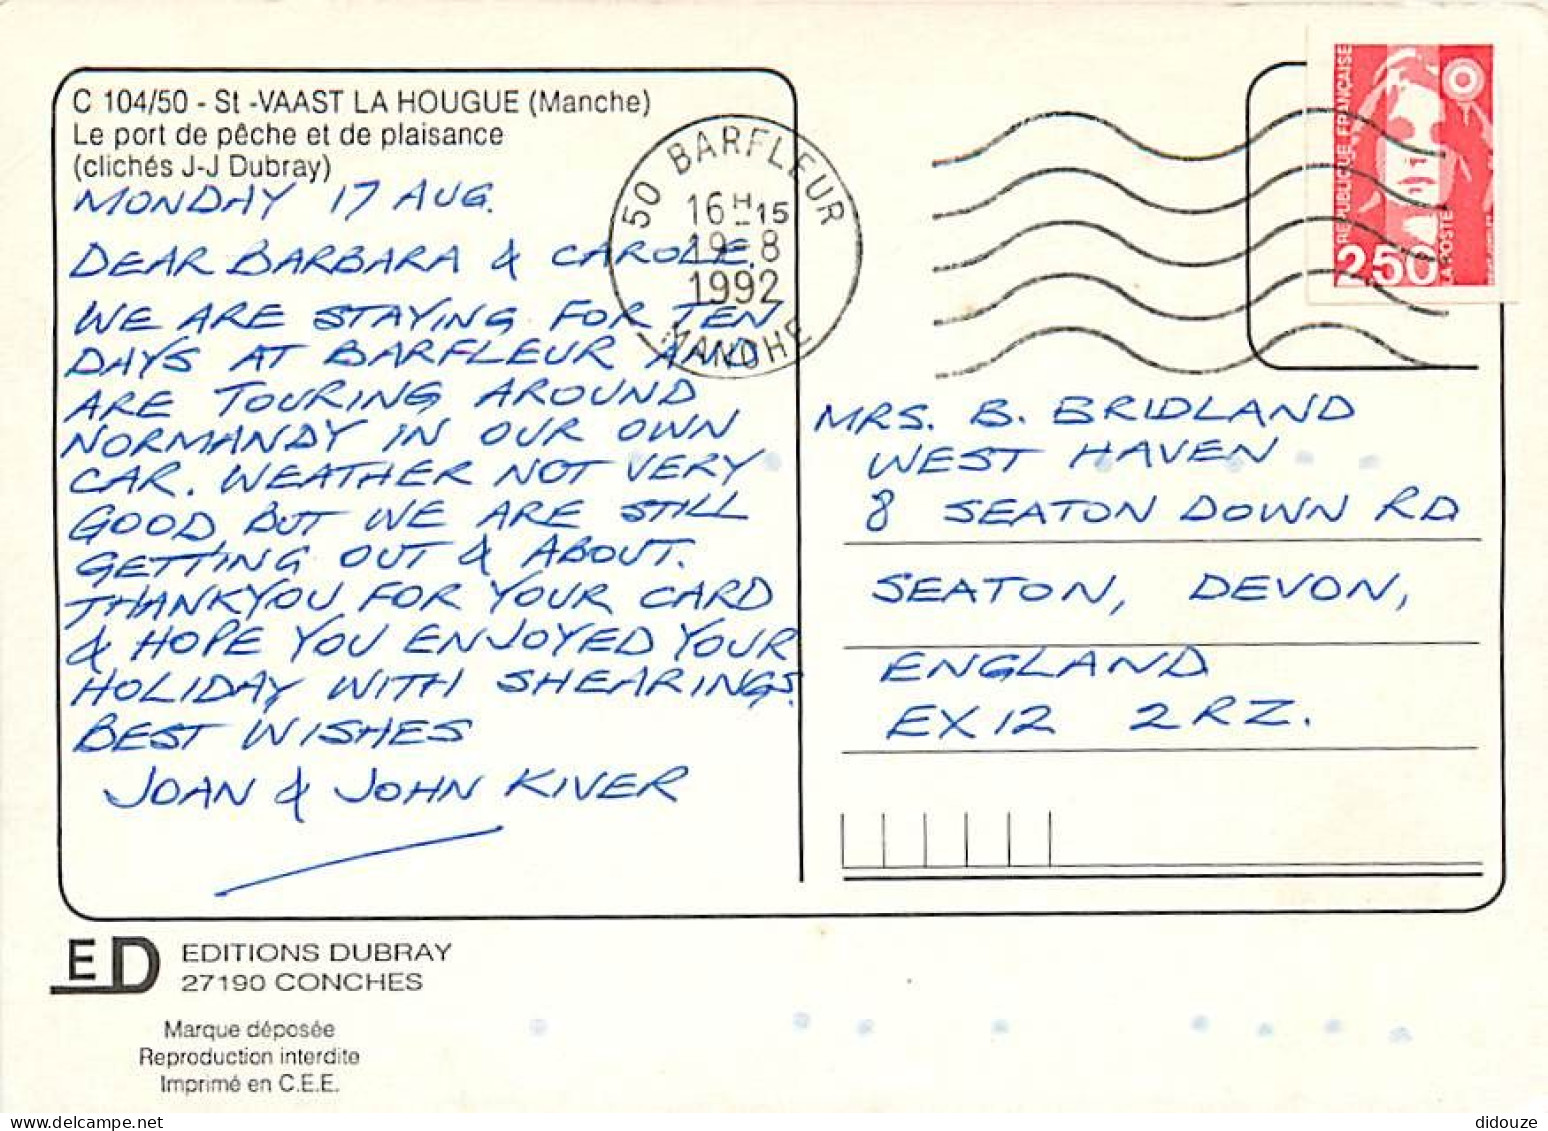 C 104/50 - St -VAAST LA HOUGUE (Manche)
Le port de pêche et de plaisance
(clichés J-J Dubray)
MONDAY 17 AUG.
DEAR BARBARA & CAROLE.
WE ARE STAYING FOR TEN
DAYS AT BARFLEUR AND
ARE TOURING AROUND
NORMANDY IN OUR OWN
CAR. WEATHER NOT VERY
GOOD BUT WE ARE STILL
GETTING OUT & ABOUT.
THANKYOU FOR YOUR CARD
& HOPE YOU ENJOYED YOUR
HOLIDAY WITH SHEARINGS.
BEST WISHES
JOAN & JOHN KIVER
50 BARFLEUR
16H15
19-8
1992
MANCHE
REPUBLIQUE FRANÇAISE
2,50
LA POSTE
MRS. B. BRIDLAND
WEST HAVEN
8 SEATON DOWN RD
SEATON, DEVON,
ENGLAND
EX12 2RZ.
ED
EDITIONS DUBRAY
27190 CONCHES
Marque déposée
Reproduction interdite
Imprimé en C.E.E.
didouze